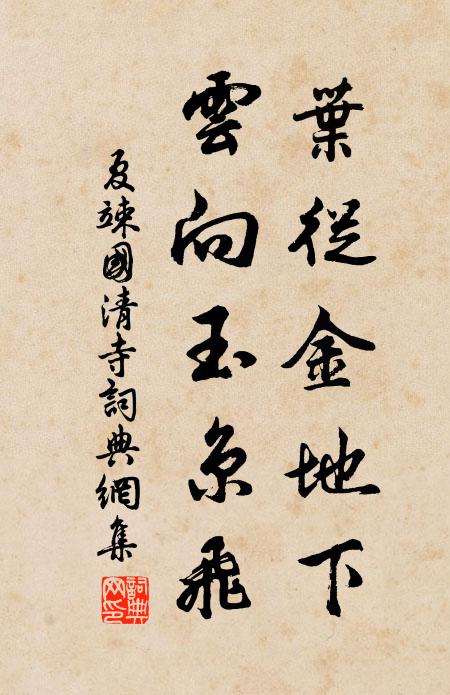 葉從金地下
雲向玉京飛
夏竦國清寺詞典網集
詞典網印